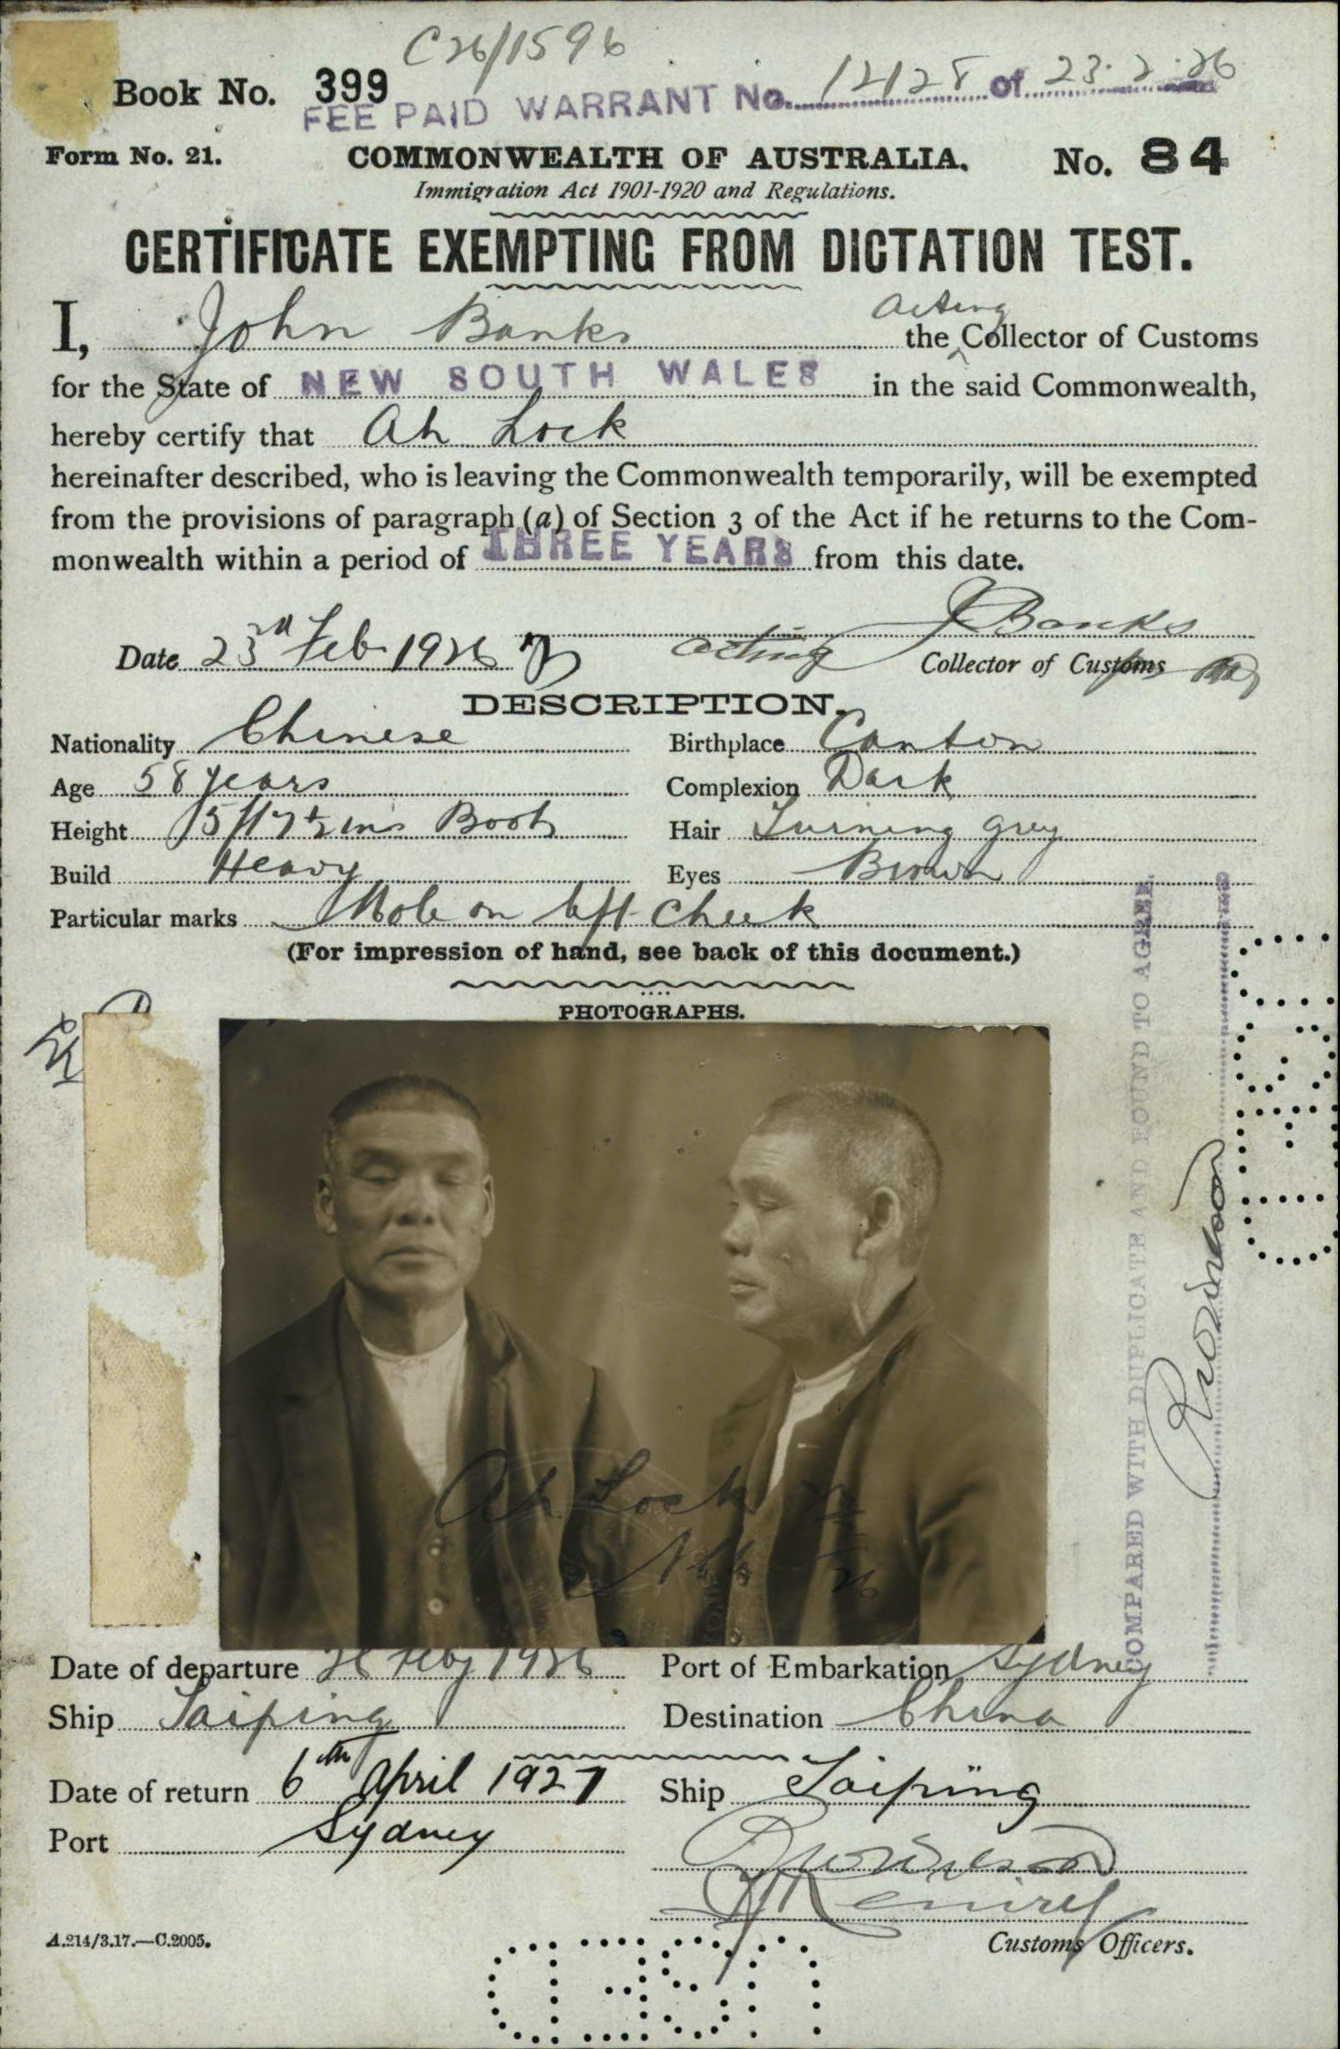 C26/1596
Book No. 399
FEE PAID WARRANT No. 12128 of 23.2.26
Form No. 21. COMMONWEALTH OF AUSTRALIA. No. 84
Immigration Act 1901-1920 and Regulations.
CERTIFICATE EXEMPTING FROM DICTATION TEST.
I, John Banks the acting Collector of Customs
for the State of NEW SOUTH WALES in the said Commonwealth,
hereby certify that Ah Lock
hereinafter described, who is leaving the Commonwealth temporarily, will be exempted
from the provisions of paragraph (a) of Section 3 of the Act if he returns to the Com-
monwealth within a period of THREE YEARS from this date.
J Banks
Date 23rd Feb 1926 acting Collector of Customs
DESCRIPTION.
Nationality Chinese Birthplace Canton
Age 58 years Complexion Dark
Height 5 ft 7 ½ ins Boots Hair Turning grey
Build Heavy Eyes Brown
Particular marks Mole on left cheek
(For impression of hand, see back of this document.)
PHOTOGRAPHS.
Ah Lock
COMPARED WITH DUPLICATE AND FOUND TO AGREE.
Date of departure Feby 1926 Port of Embarkation Sydney
Ship Taiping Destination China
Date of return 6th April 1927 Ship Taiping
Port Sydney
A.214/3.17.—C.2005. Customs Officers.
USED